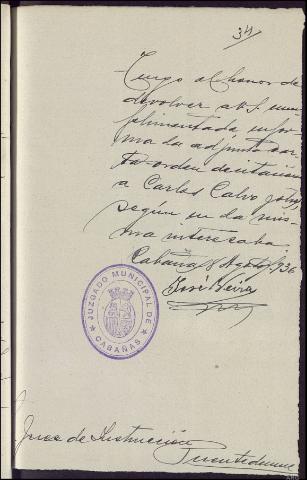 34
Tengo el honor de
devolver a V.S. cum-
plimentada en for-
ma la adjunta car-
ta-orden de citación
a Carlos Calvo
según en la mis-
ma interesaba.
Cabañas 8 Agosto 1936
José Neira
JUZGADO MUNICIPAL DE
★ CABAÑAS ★
Juez de Instrucción
Puentedeume